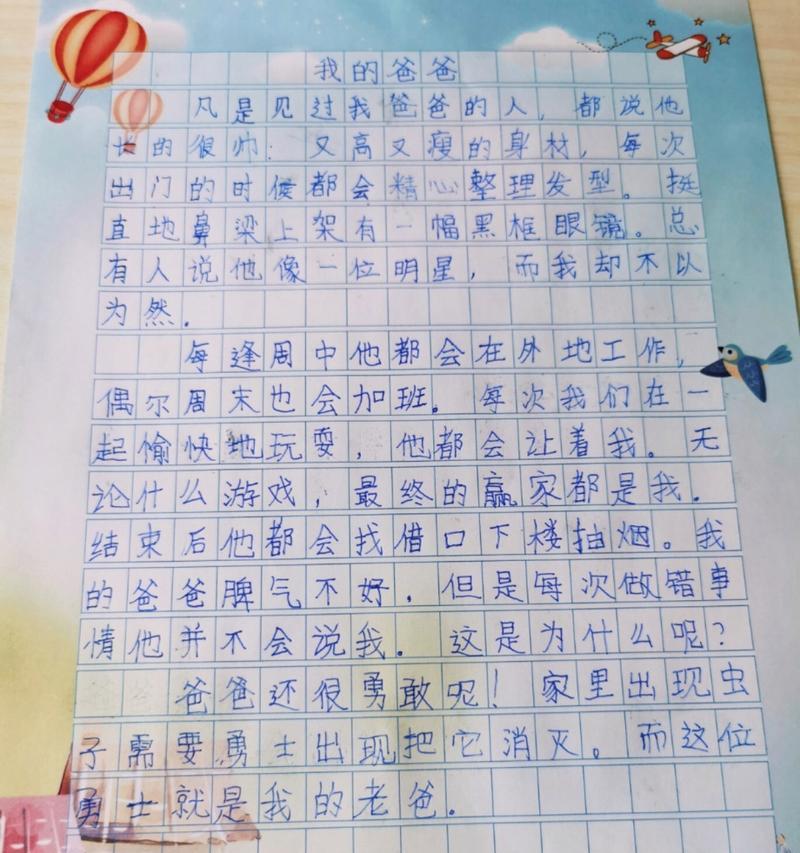 我的爸爸
凡是见过我爸爸的人，都说他
长的很帅：又高又瘦的身材，每次
出门的时候都会精心整理发型。挺
直地鼻梁上架有一幅黑框眼镜。总
有人说他像一位明星，而我却不以
为然．
每逢周中他都会在外地工作，
偶尔周末也会加班。每次我们在一
起愉快地玩耍，他都会让着我。无
论什么游戏，最终的赢家都是我．
结束后他都会找借口下楼抽烟。我
的爸爸脾气不好．但是每次做错事
情他并不会说我．这是为什么呢？
爸爸还很勇敢呢！家里出现虫
子需要勇士出现把它消灭。而这位
勇士就是我的老爸．